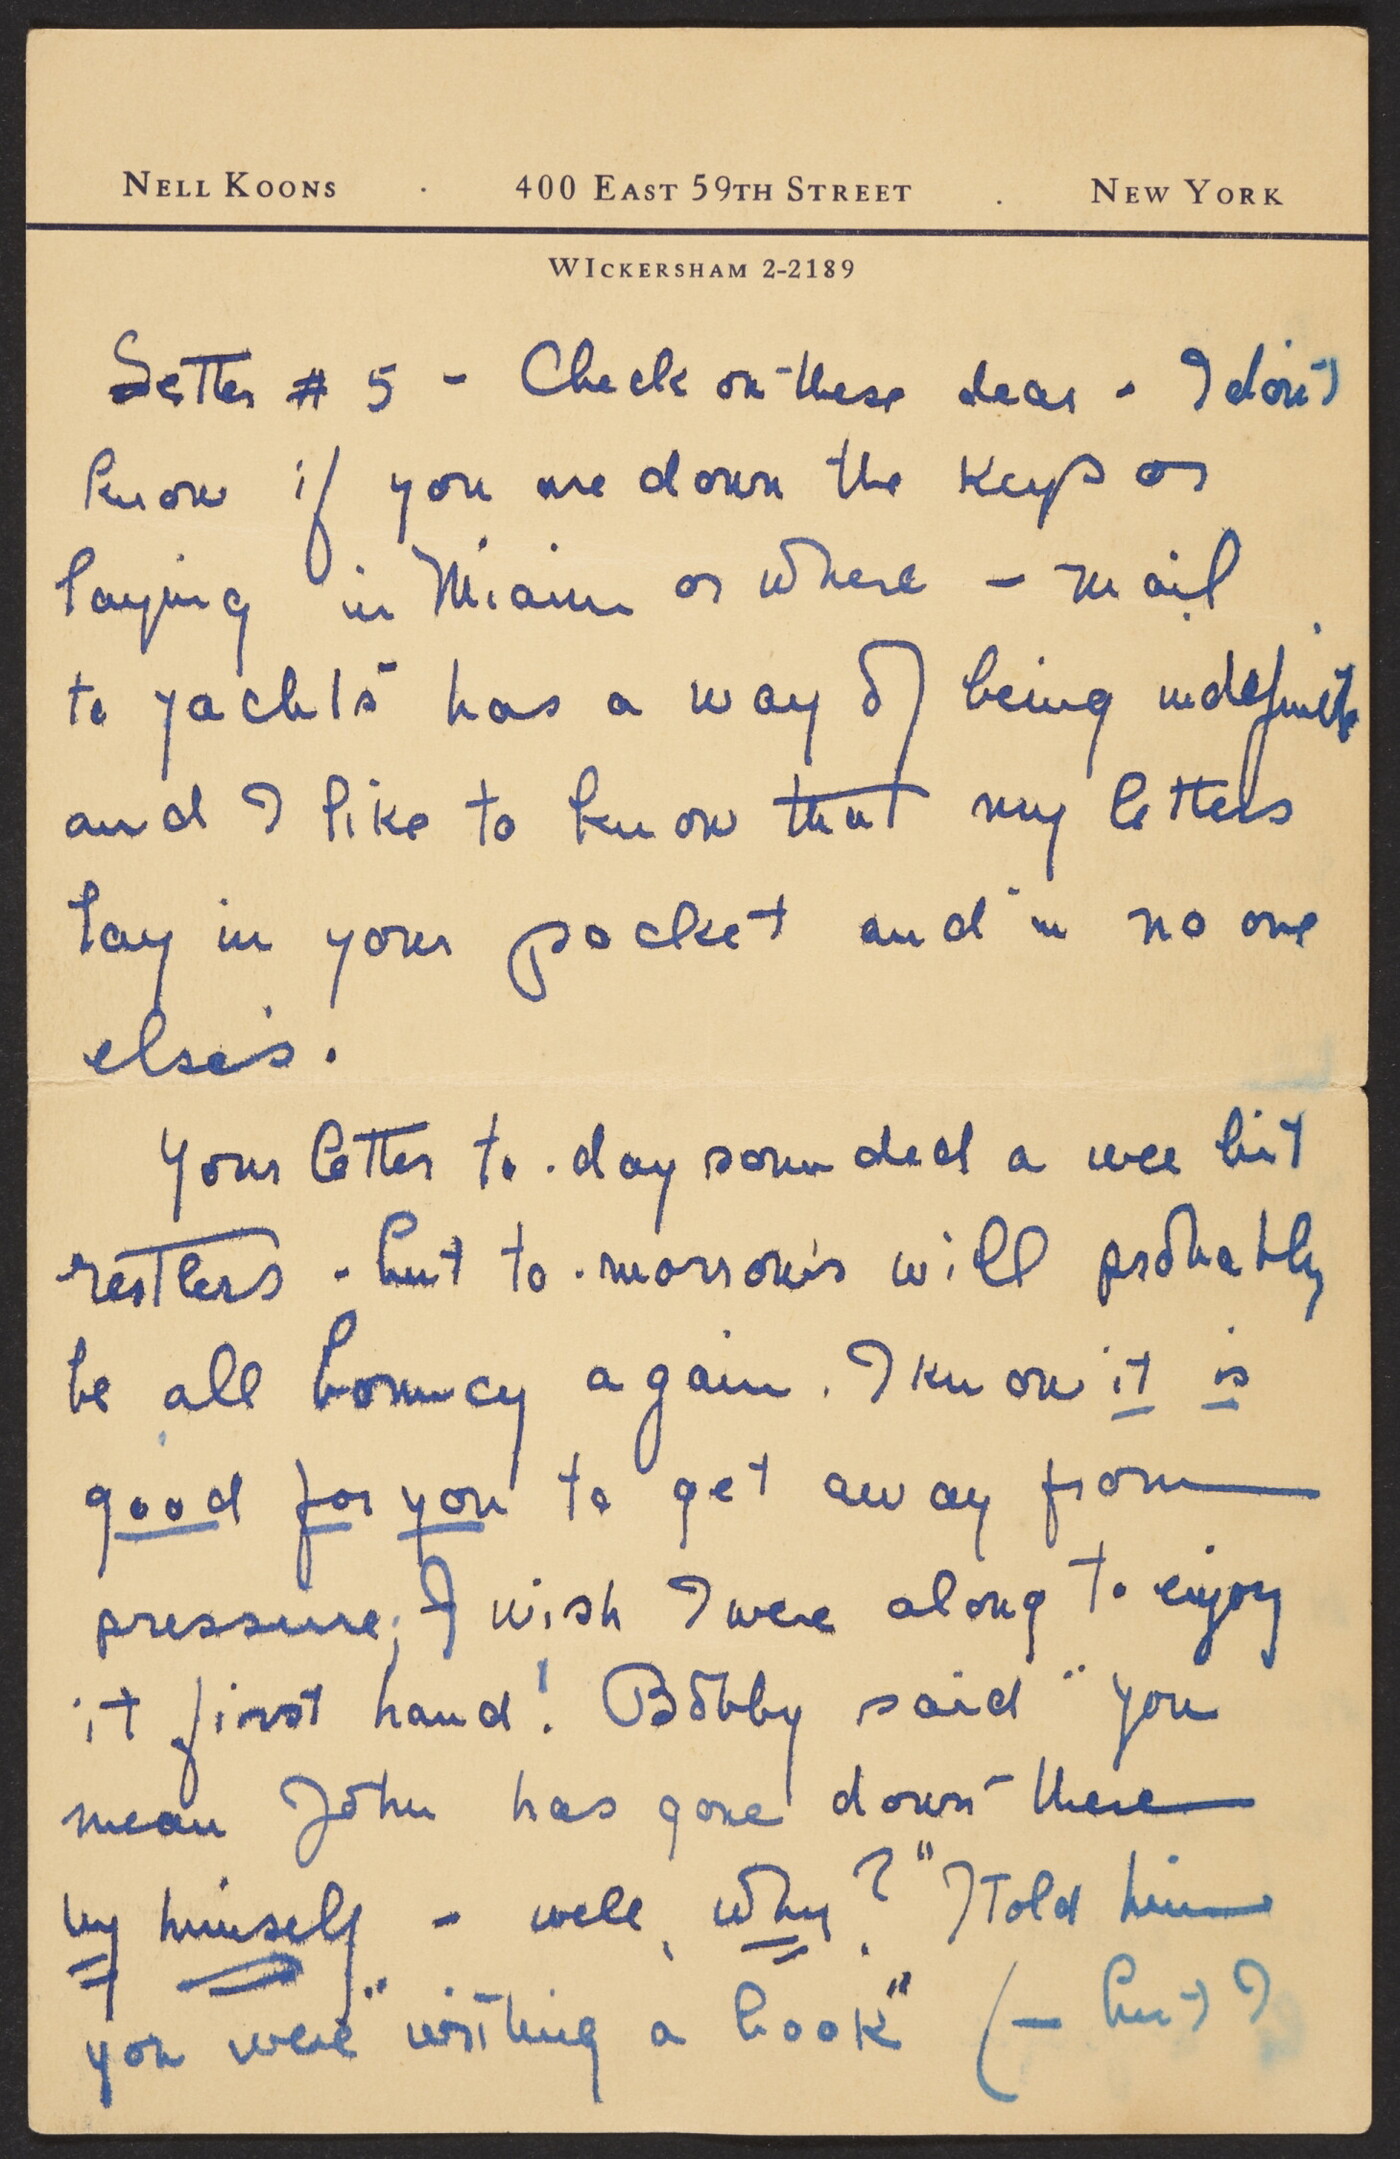 NELL KOONS · 400 EAST 59TH STREET . NEW YORK
WICKERSHAM 2-2189
Letter # 5 - Check on these dear - I don't
know if you are down the Keys or
laying in Miami or where - mail
to yachts has a way of being indefinite
and I like to know that my letters
lay in your pocket and in no one
else's.
Your letter to-day sounded a wee bit
restless - but to-morrow's will probably
be all bouncy again. I know it is
good for you to get away from
pressure; I wish I were along to enjoy
it first hand! Bobby said "you
mean John has gone down there
by himself - well, why?" I told him
you were "writing a book" (- but I